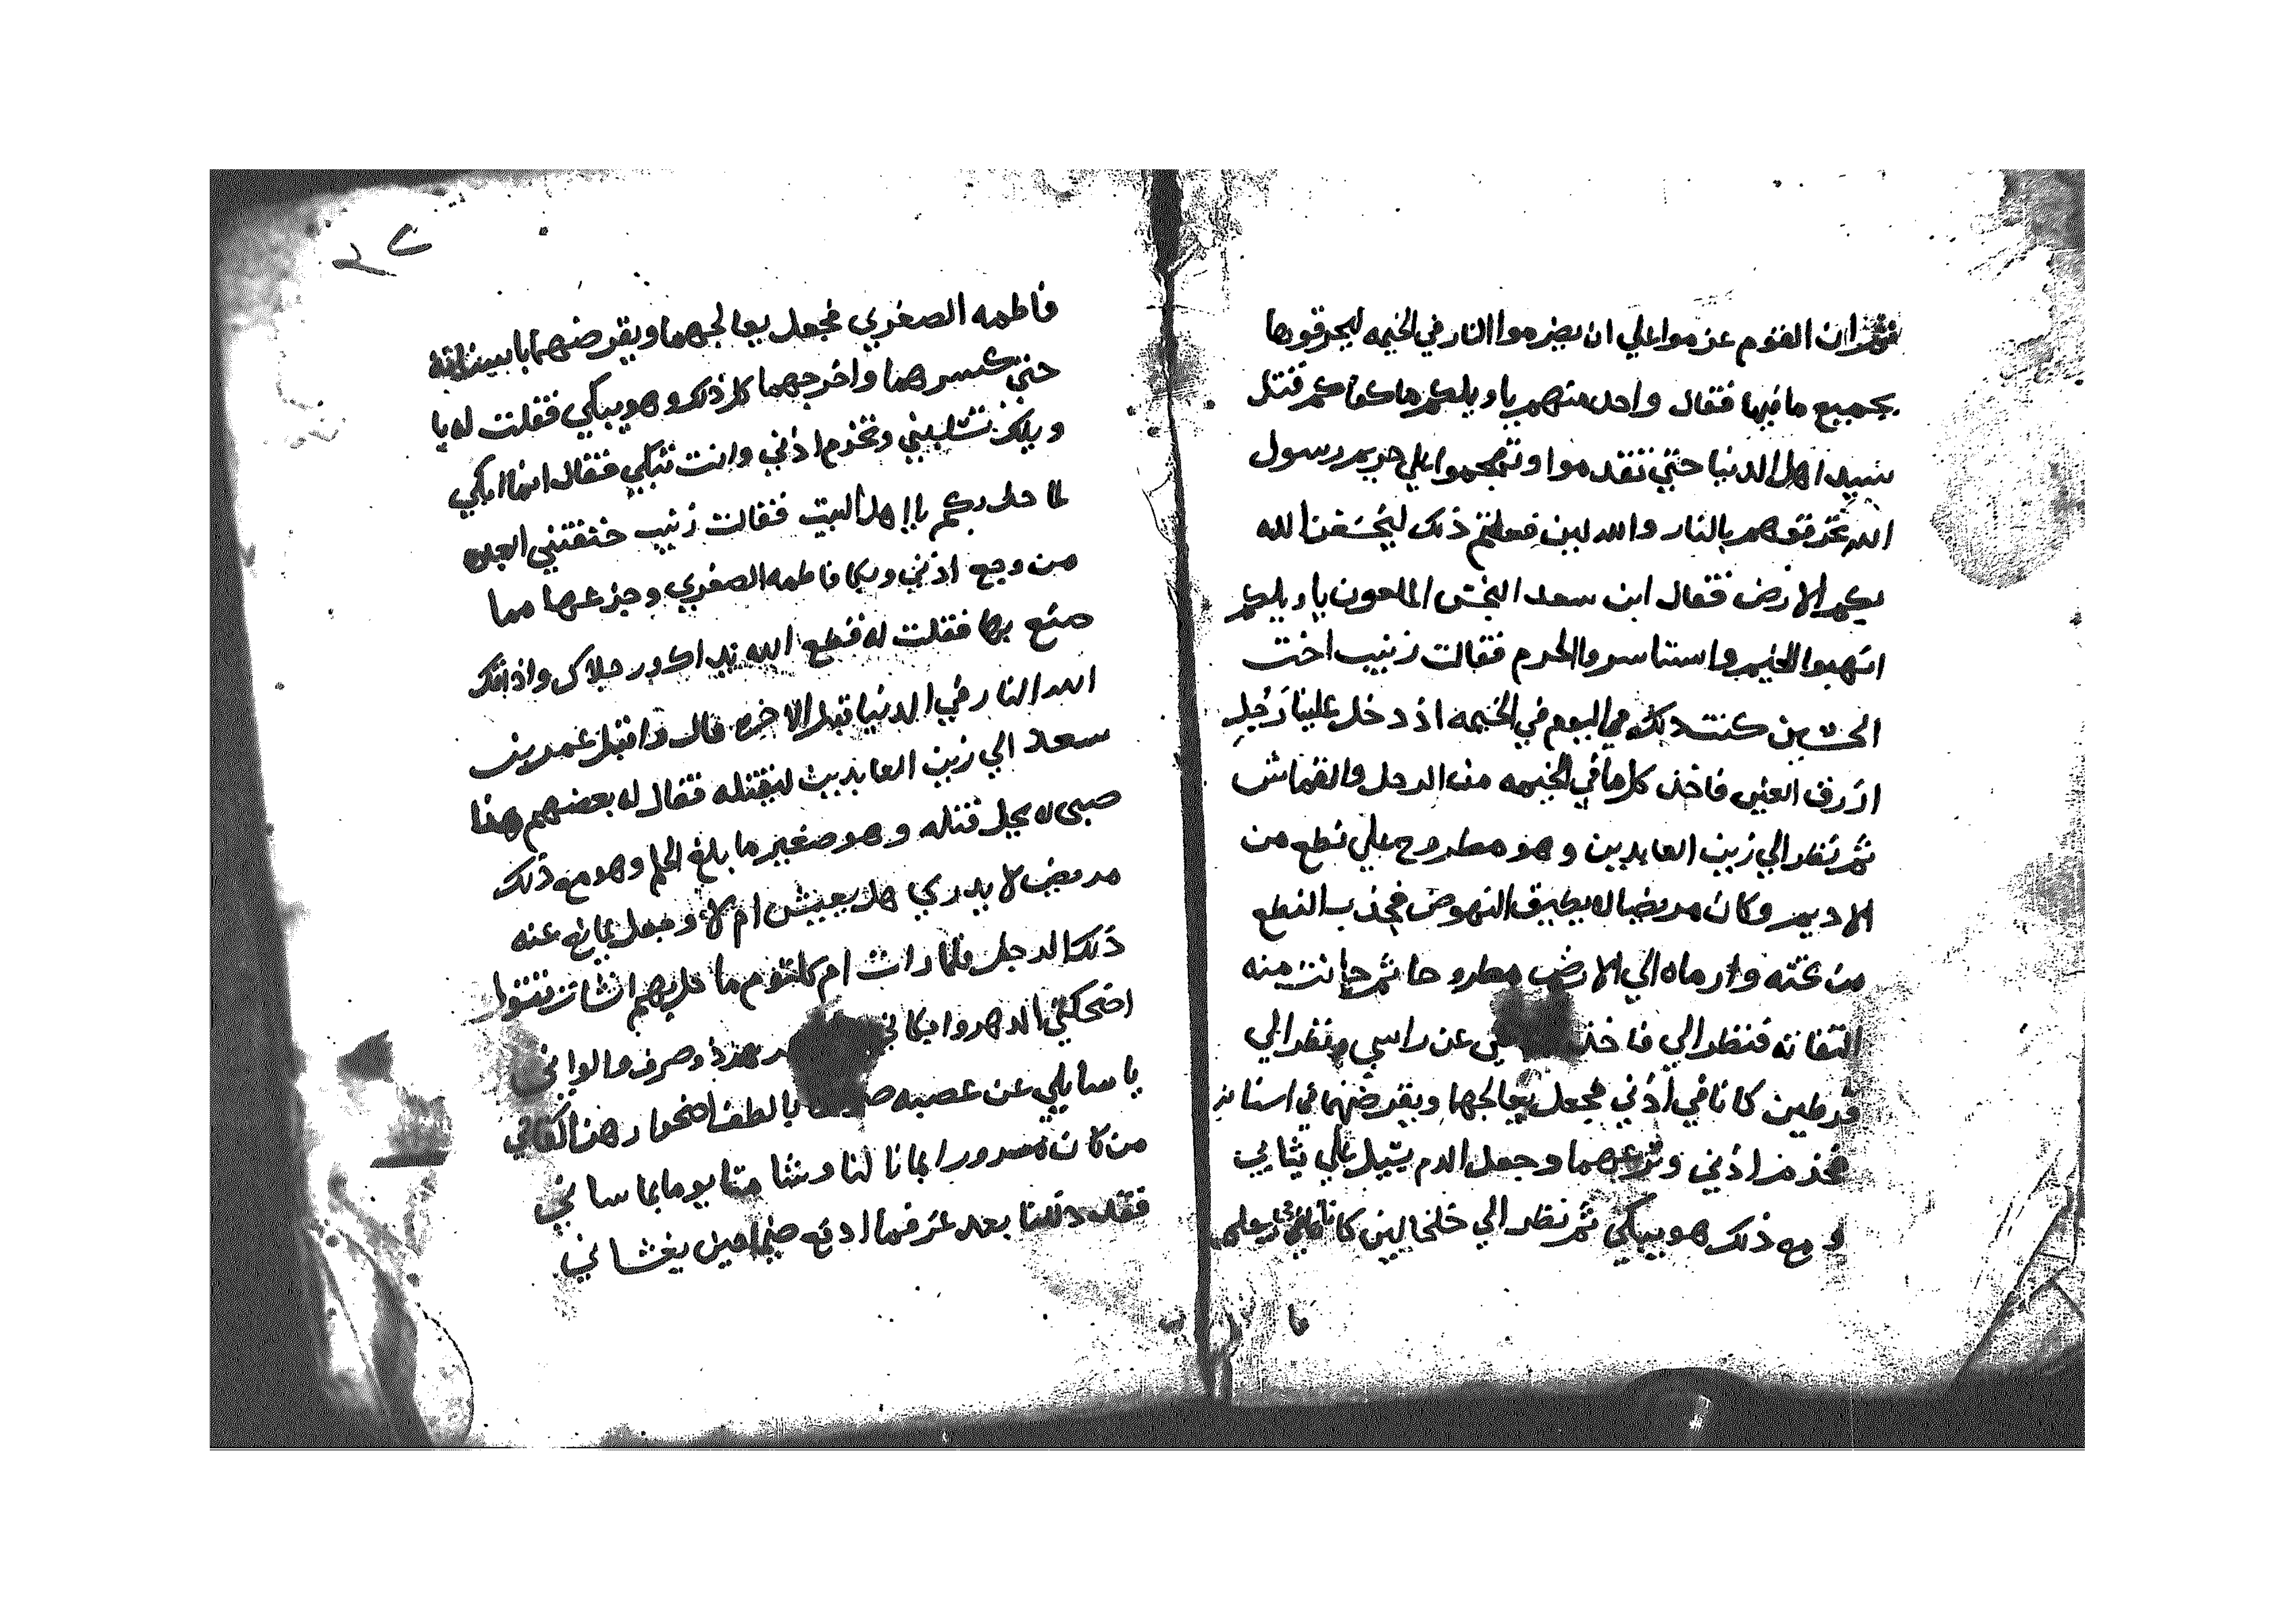 ثم ان القوم عزموا علي ان يضرموا النار في الخيمه ليحرقوها
بجميع ما فيها فقال واحد منهم يا ويلكم ما كفاكم قتل
سيد اهل الدنيا حتي تقدموا وتهجموا علي حريم رسول
الله تحرقوهم بالنار والله لين فعلتم ذلك ليخسفن الله
بكم الارض فقال ابن سعد الملعون يا ويلكم
انهبوا الخيم واستاسروا الحرم فقالت زينب اخت
الحسين كنت ذلك اليوم في الخيمه اذ دخل علينا رجل
ازرق العين فاخذ كل ما في الخيمه من الرحل والقماش
ثم نظر الي زين العابدين وهو مطروح علي نطع من
الاديم وكان مريضا لم يطيق النهوض فجذب النطع
من تحته وارماه الي الارض مطروحا ثم حانت منه
التفاته فنظر الي فاخذ عن راسي ونظر الي
قرطين كانا في أذني فجعل يعالجها ويقرضهما في اسنانه
فخذم اذني ونزعهما وجعل الدم يسيل علي ثيابي
ومع ذلك هو يبكي ثم نظر الي خلخالين كانا
فا
فاطمه الصغري فجعل يعالجهما ويقرضهما
حتي كسرهما واخرجهما كل ذلك وهو يبكي فقلت له يا
ويلك تسلبني وتخذم اذني وانت تبكي فقال انما ابكي
لما حل بكم يا اهل البيت فقالت زينب خنقتني العبره
من وجع اذني وبكا فاطمه الصغري وجزعها مما
صنع بها فقلت له قطع الله يداك ورجلاك واذاقك
الله النار في الدنيا قبل الاخره قال واقبل عمر بن
سعد الي زين العابدين ليقتله فقال له بعضهم هذا
صبي لا يحل قتله وهو صغير ما بلغ الحلم وهو مع ذلك
مريض لا يدري هل يعيش ام لا وجعل يمانع عنه
ذلك الرجل فلما رات ام كلثوم ما حل بهم انشات تقول
اضحكني الدهر وابكاني وصرف والواني
يا سايلي عن عصبه بالطف هذا لكفاني
من كان مسرورا بما نا لنا وشا متا يوما بما ساني
فقد ذللنا بعد عز فما ادفع ضيما حين يغشاني